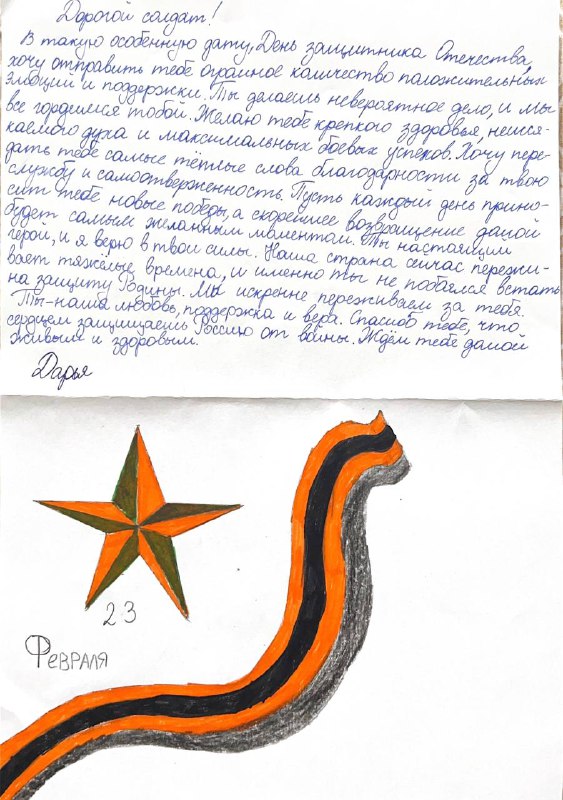 Дорогой солдат!
В такую особенную дату, День защитника Отечества,
хочу отправить тебе огромное количество положительных
эмоций и поддержки. Ты делаешь невероятное дело, и мы
все гордимся тобой. Желаю тебе крепкого здоровья, неисся-
каемого духа и максимальных боевых успехов. Хочу пере-
дать тебе самые тёплые слова благодарности за твою
службу и самоотверженность. Пусть каждый день прино-
сит тебе новые победы, а скорейшее возвращение домой
будет самым желанным моментом. Ты настоящий
герой, и я верю в твои силы. Наша страна сейчас пережи-
вает тяжёлые времена, и именно ты не побоялся встать
на защиту Родины. Мы искренне переживаем за тебя.
Ты-наша любовь, поддержка и вера. Спасибо тебе, что
сердцем защищаешь Россию от войны. Ждём тебе домой
живым и здоровым.
Дарья
23
Февраля